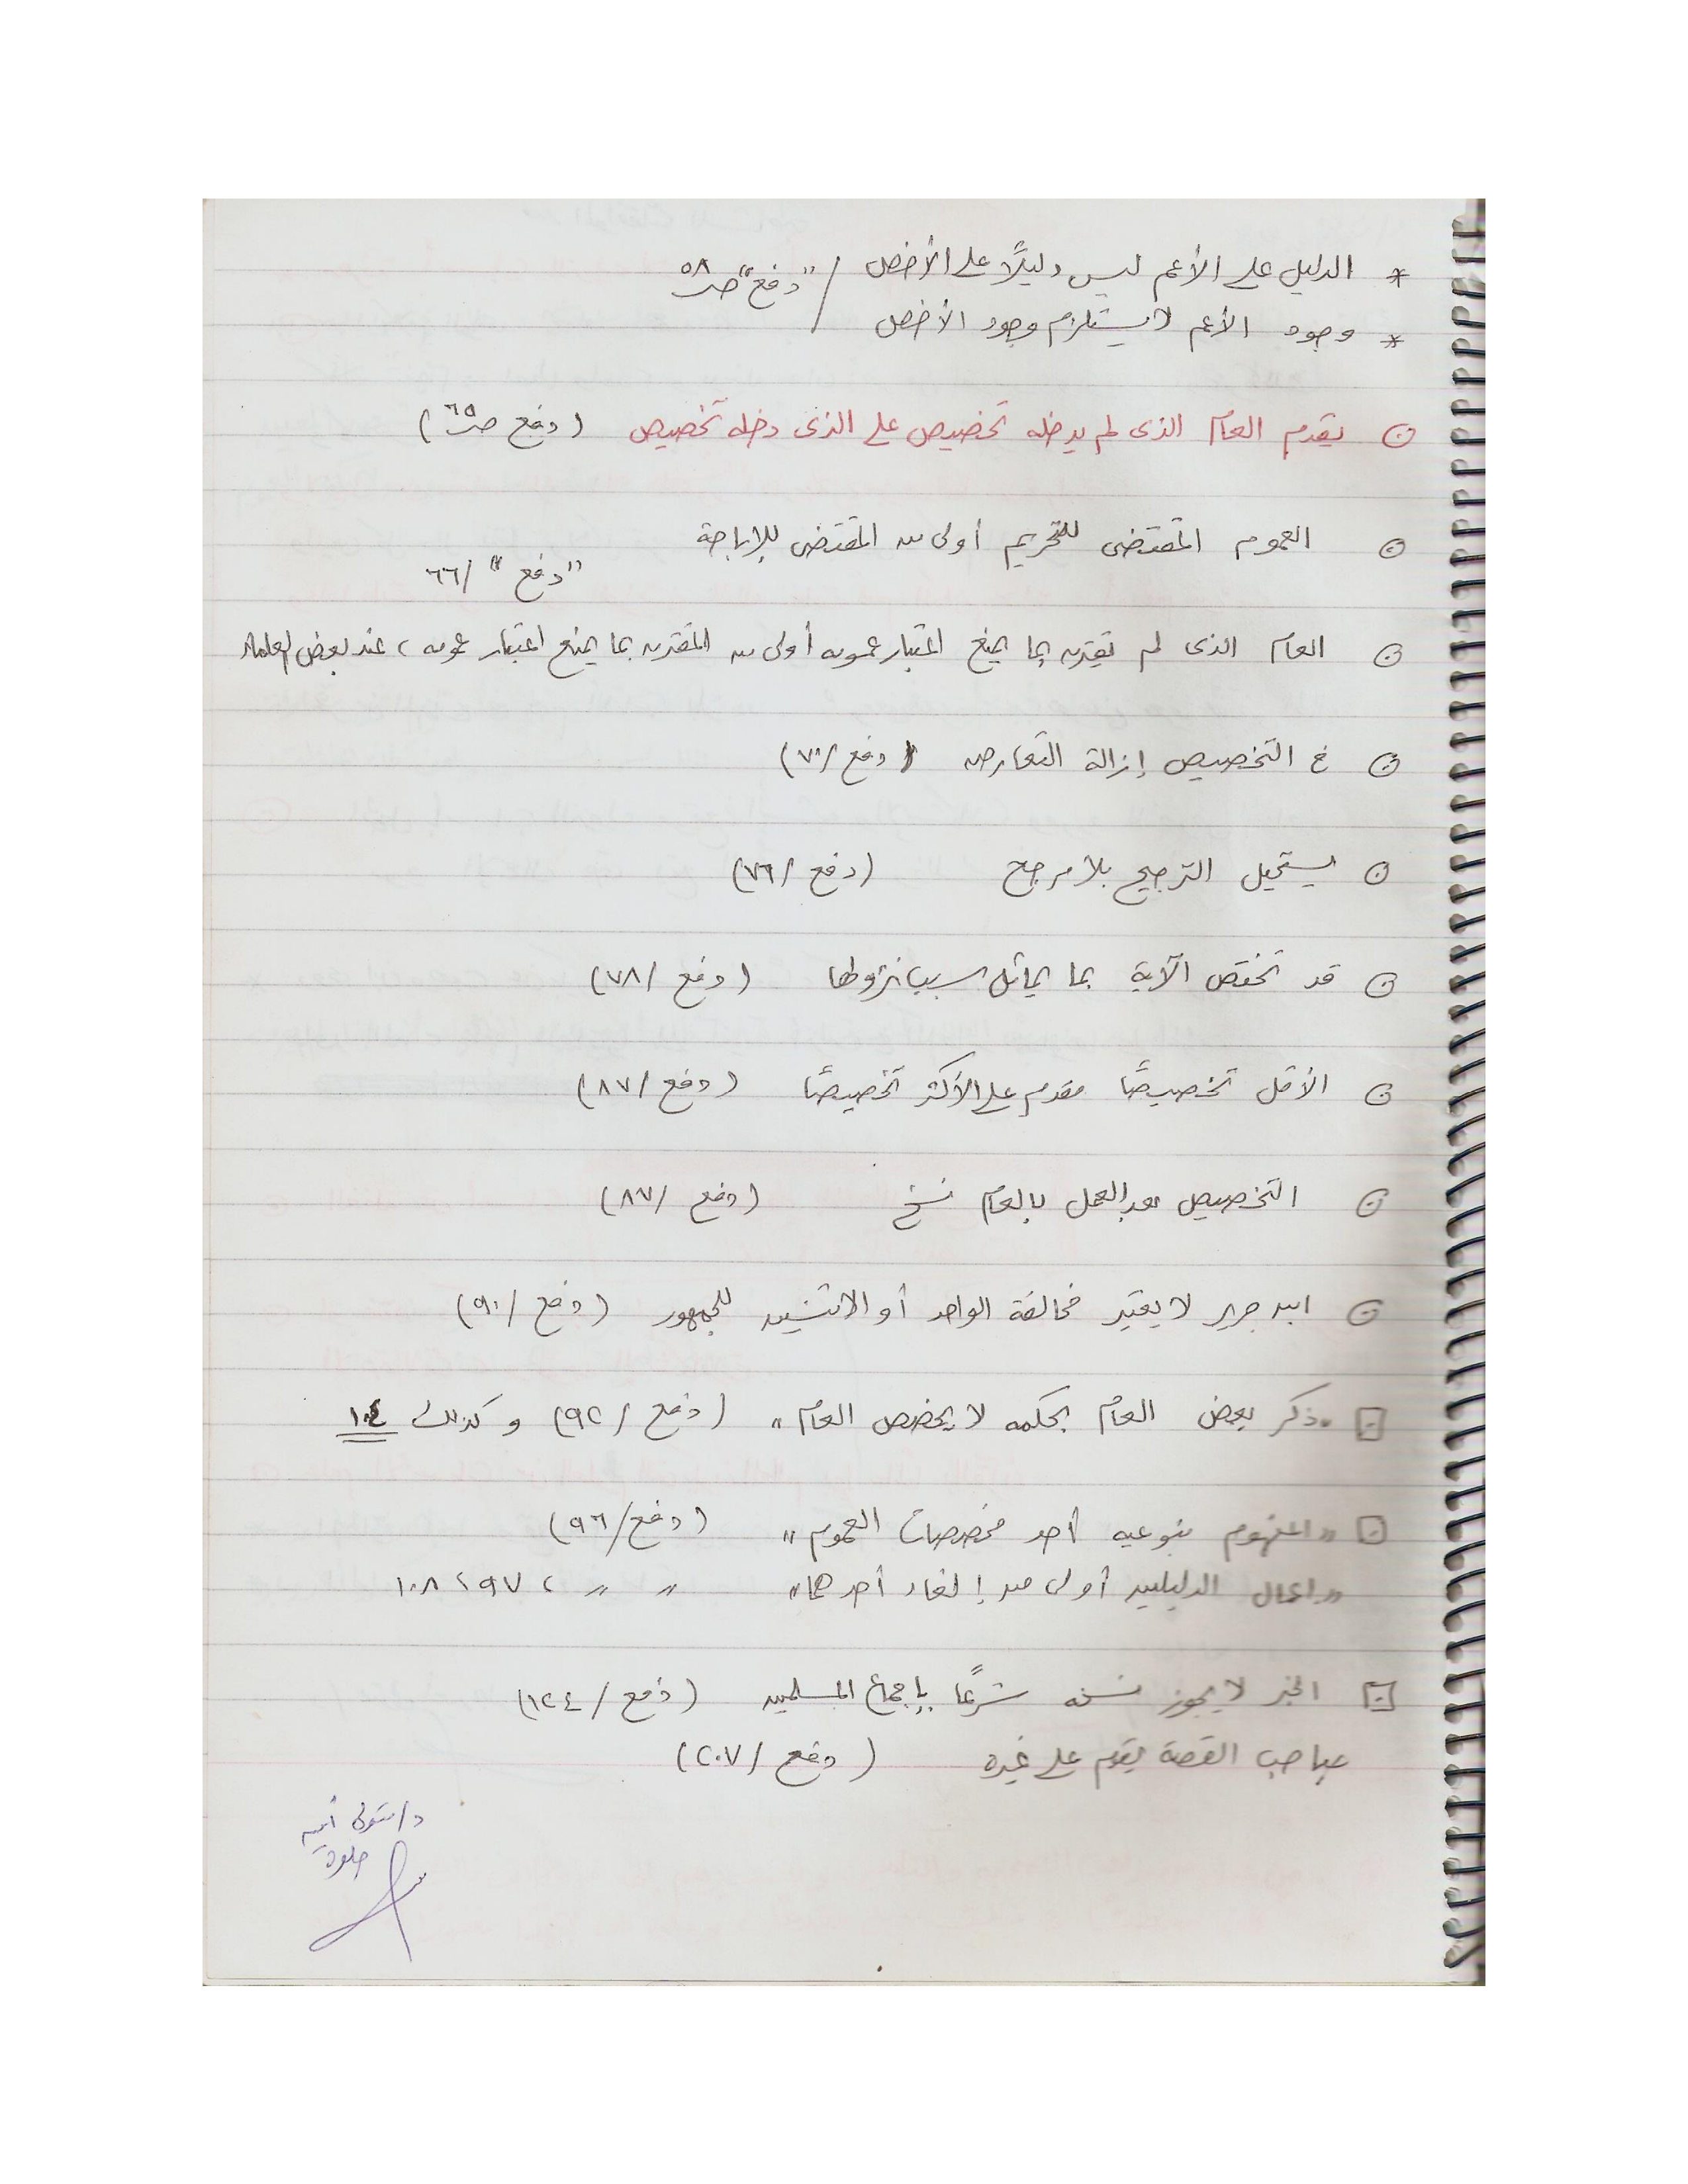 * الدليل على الأعم ليس دليلًا على الأخص / "دفع" صـ ٥٨
* وجود الأعم لا يستلزم وجود الأخص
يقدم العام الذى لم يدخله تخصيص على الذى دخله تخصيص (دفع صـ ٦٥)
العموم المقتضى للتحريم أولى من المقتضى للإباحة
"دفع" / ٦٦
العام الذى لم يقترن بما يمنع اعتبار عمومه أولى من المقترن بما يمنع اعتبار عمومه، عند بعض العلماء
فى التخصيص إزالة التعارض (دفع / ٧٠)
يستحيل الترجيح بلا مرجح (دفع / ٧٦)
قد تختص الآية بما يماثل سبب نزولها (دفع / ٧٨)
الأقل تخصيصًا مقدم على الأكثر تخصيصًا (دفع / ٨٧)
التخصيص بعد العمل بالعام نسخ (دفع / ٨٧)
ابن جرير لا يعتبر مخالفة الواحد أو الاثنين للجمهور (دفع / ٩٠)
"ذكر بعض العام بحكمه لا يخصص العام" (دفع / ٩٢) وكذلك ١٠٤
"المفهوم بنوعيه أحد مخصصات العموم" (دفع / ٩٦)
"إعمال الدليلين أولى من إلغاء أحدهما" " " ، ٩٧ ، ١٠٨
الخبر لا يجوز نسخه شرعًا بإجماع المسلمين (دفع / ١٢٤)
صاحب القصة يقدم على غيره (دفع / ٢٠٧)
د/ متولى أمين
حلوة